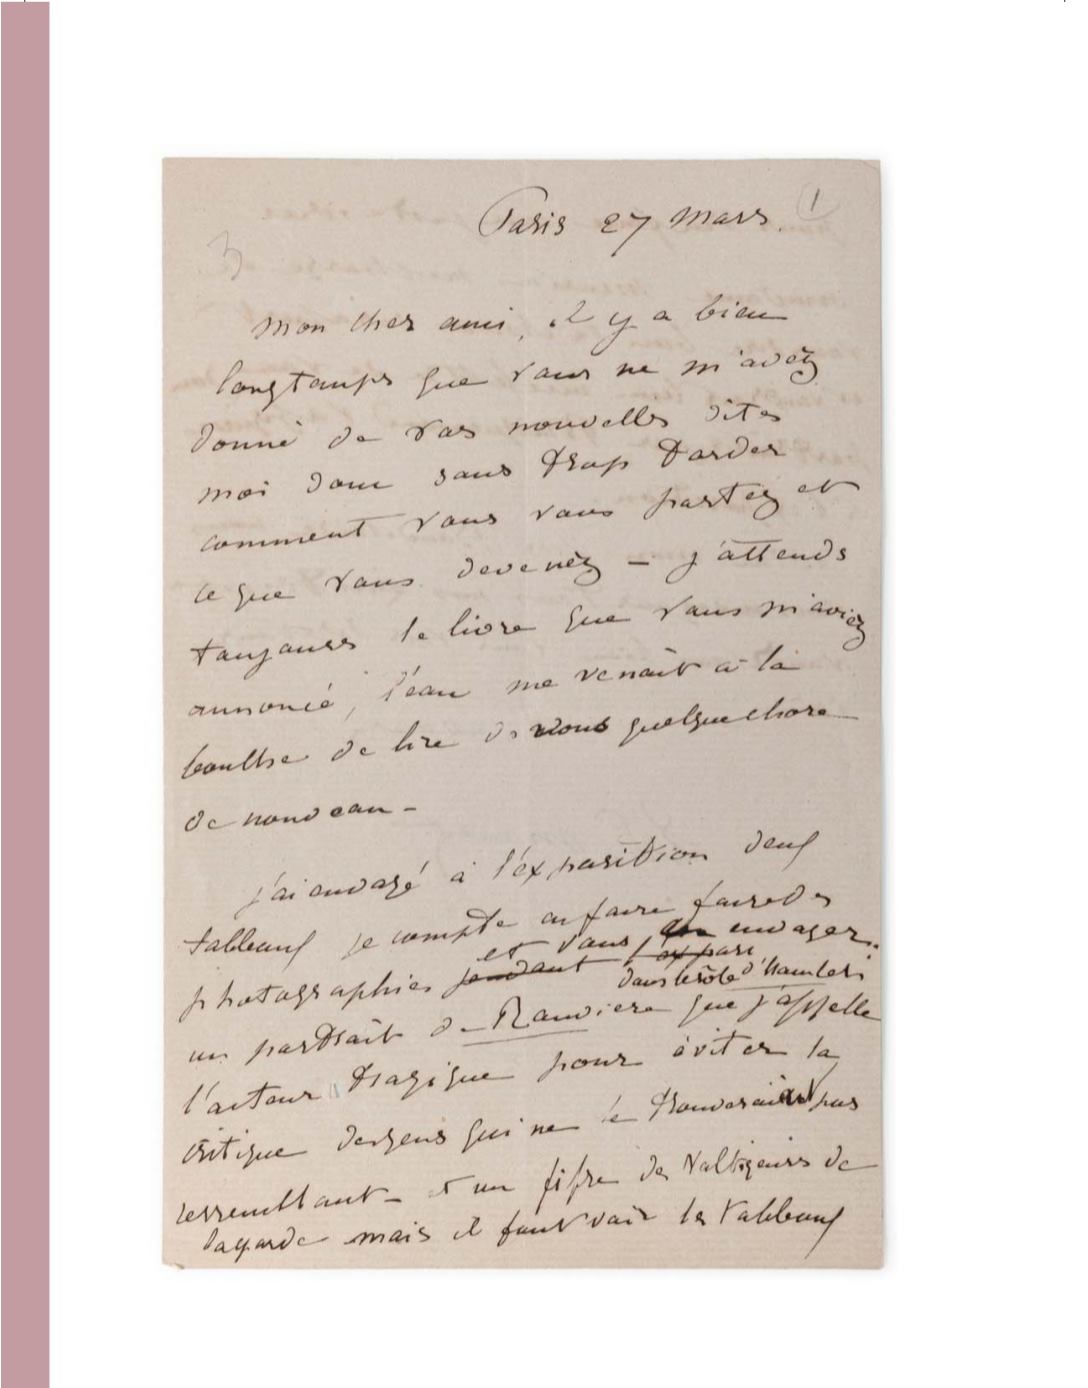 1
Paris 27 mars.
3
Mon cher ami, il y a bien
longtemps que vous ne m'avez
donné de vos nouvelles dites
moi donc sans trop tarder
comment vous vous portez et
ce que vous devenez — j'attends
toujours le livre que vous m'aviez
annoncé, l'eau me venait à la
bouche de lire de vous quelque chose
de nouveau —
j'ai envoyé à l'exposition deux
tableaux je compte en faire faire des
photographies et vous en envoyer.
dans le rôle d'Hamlet
un portrait de Rouvière que j'appelle
l'acteur tragique pour éviter la
critique des gens qui ne le trouveraient pas
ressemblant — et un fifre des Voltigeurs de
la garde mais il faut voir les tableaux